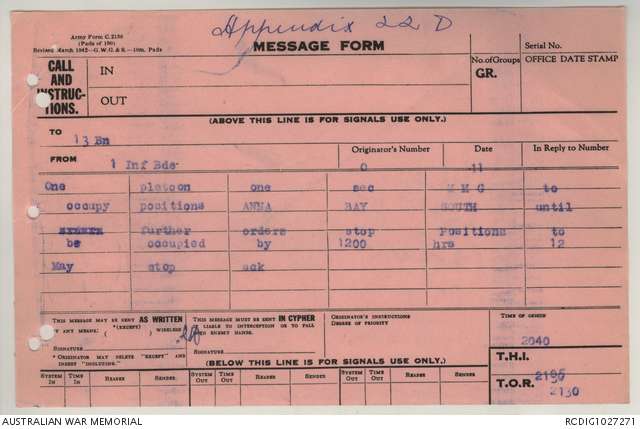 Appendix 22 D
Army Form C.2136
(Pads of 100)
MESSAGE FORM
Serial No.
CALL AND INSTRUC-TIONS.
IN
OUT
No. of Groups
GR.
OFFICE DATE STAMP
(ABOVE THIS LINE IS FOR SIGNALS USE ONLY.)
TO 13 Bn
FROM 1 Inf Bde
Originator's Number
Date
In Reply to
O 11
One platoon one sec M M G to
occupy positions ANNA BAY SOUTH until
further orders stop Positions to
be occupied by 1200 hrs 12
May stop ack
THIS MESSAGE MAY BE SENT AS WRITTEN BY ANY MEANS. (EXCEPT) WIRELESS.
THIS MESSAGE MUST BE SENT IN CYPHER IF LIABLE TO INTERCEPTION OR TO FALL INTO ENEMY HANDS.
ORIGINATOR'S INSTRUCTIONS
DEGREE OF PRIORITY
TIME OF ORIGIN
2040
SIGNATURE
SIGNATURE
* ORIGINATOR MAY DELETE "EXCEPT" AND INSERT "INCLUDING."
(BELOW THIS LINE IS FOR SIGNALS USE ONLY.)
T.H.I.
T.O.R.
2130
SYSTEM IN TIME IN READER SENDER SYSTEM OUT TIME OUT READER SENDER SYSTEM OUT TIME OUT READER SENDER
AUSTRALIAN WAR MEMORIAL
RCDIG1027271